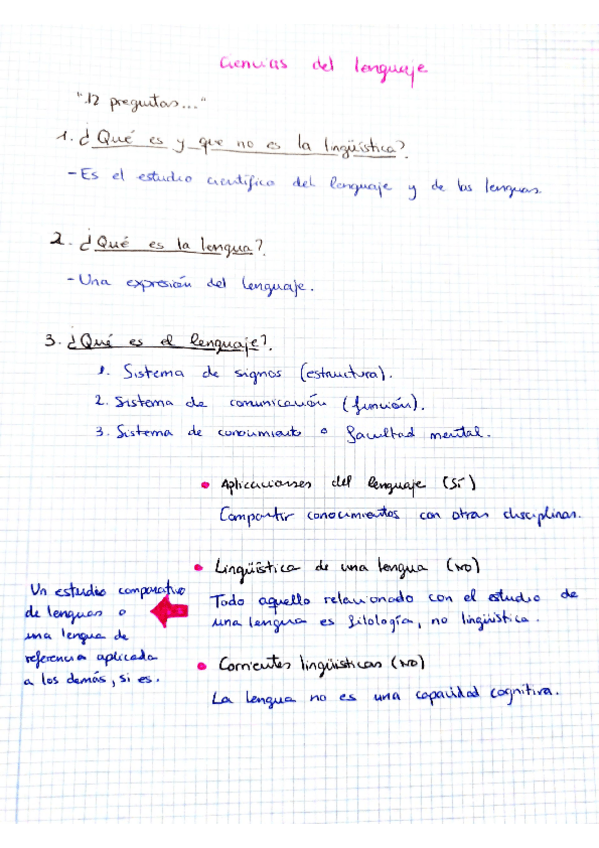 Ciencias del lenguaje
"12 preguntas..."
1. ¿Qué es y que no es la lingüística?
- Es el estudio científico del lenguaje y de las lenguas
2. ¿Qué es la lengua?.
- Una expresión del lenguaje.
3. ¿Qué es el lenguaje?.
1. Sistema de signos (estructura).
2. Sistema de comunicación (función).
3. Sistema de conocimiento o facultad mental.
• Aplicaciones del lenguaje (SÍ)
Compartir conocimientos con otras disciplinas.
• Lingüística de una lengua (NO)
Todo aquello relacionado con el estudio de
una lengua es filología, no lingüística.
Un estudio comparativo
de lenguas o
una lengua de
referencia aplicada
a los demás, si es.
• Corrientes lingüísticas (NO)
La lengua no es una capacidad cognitiva.